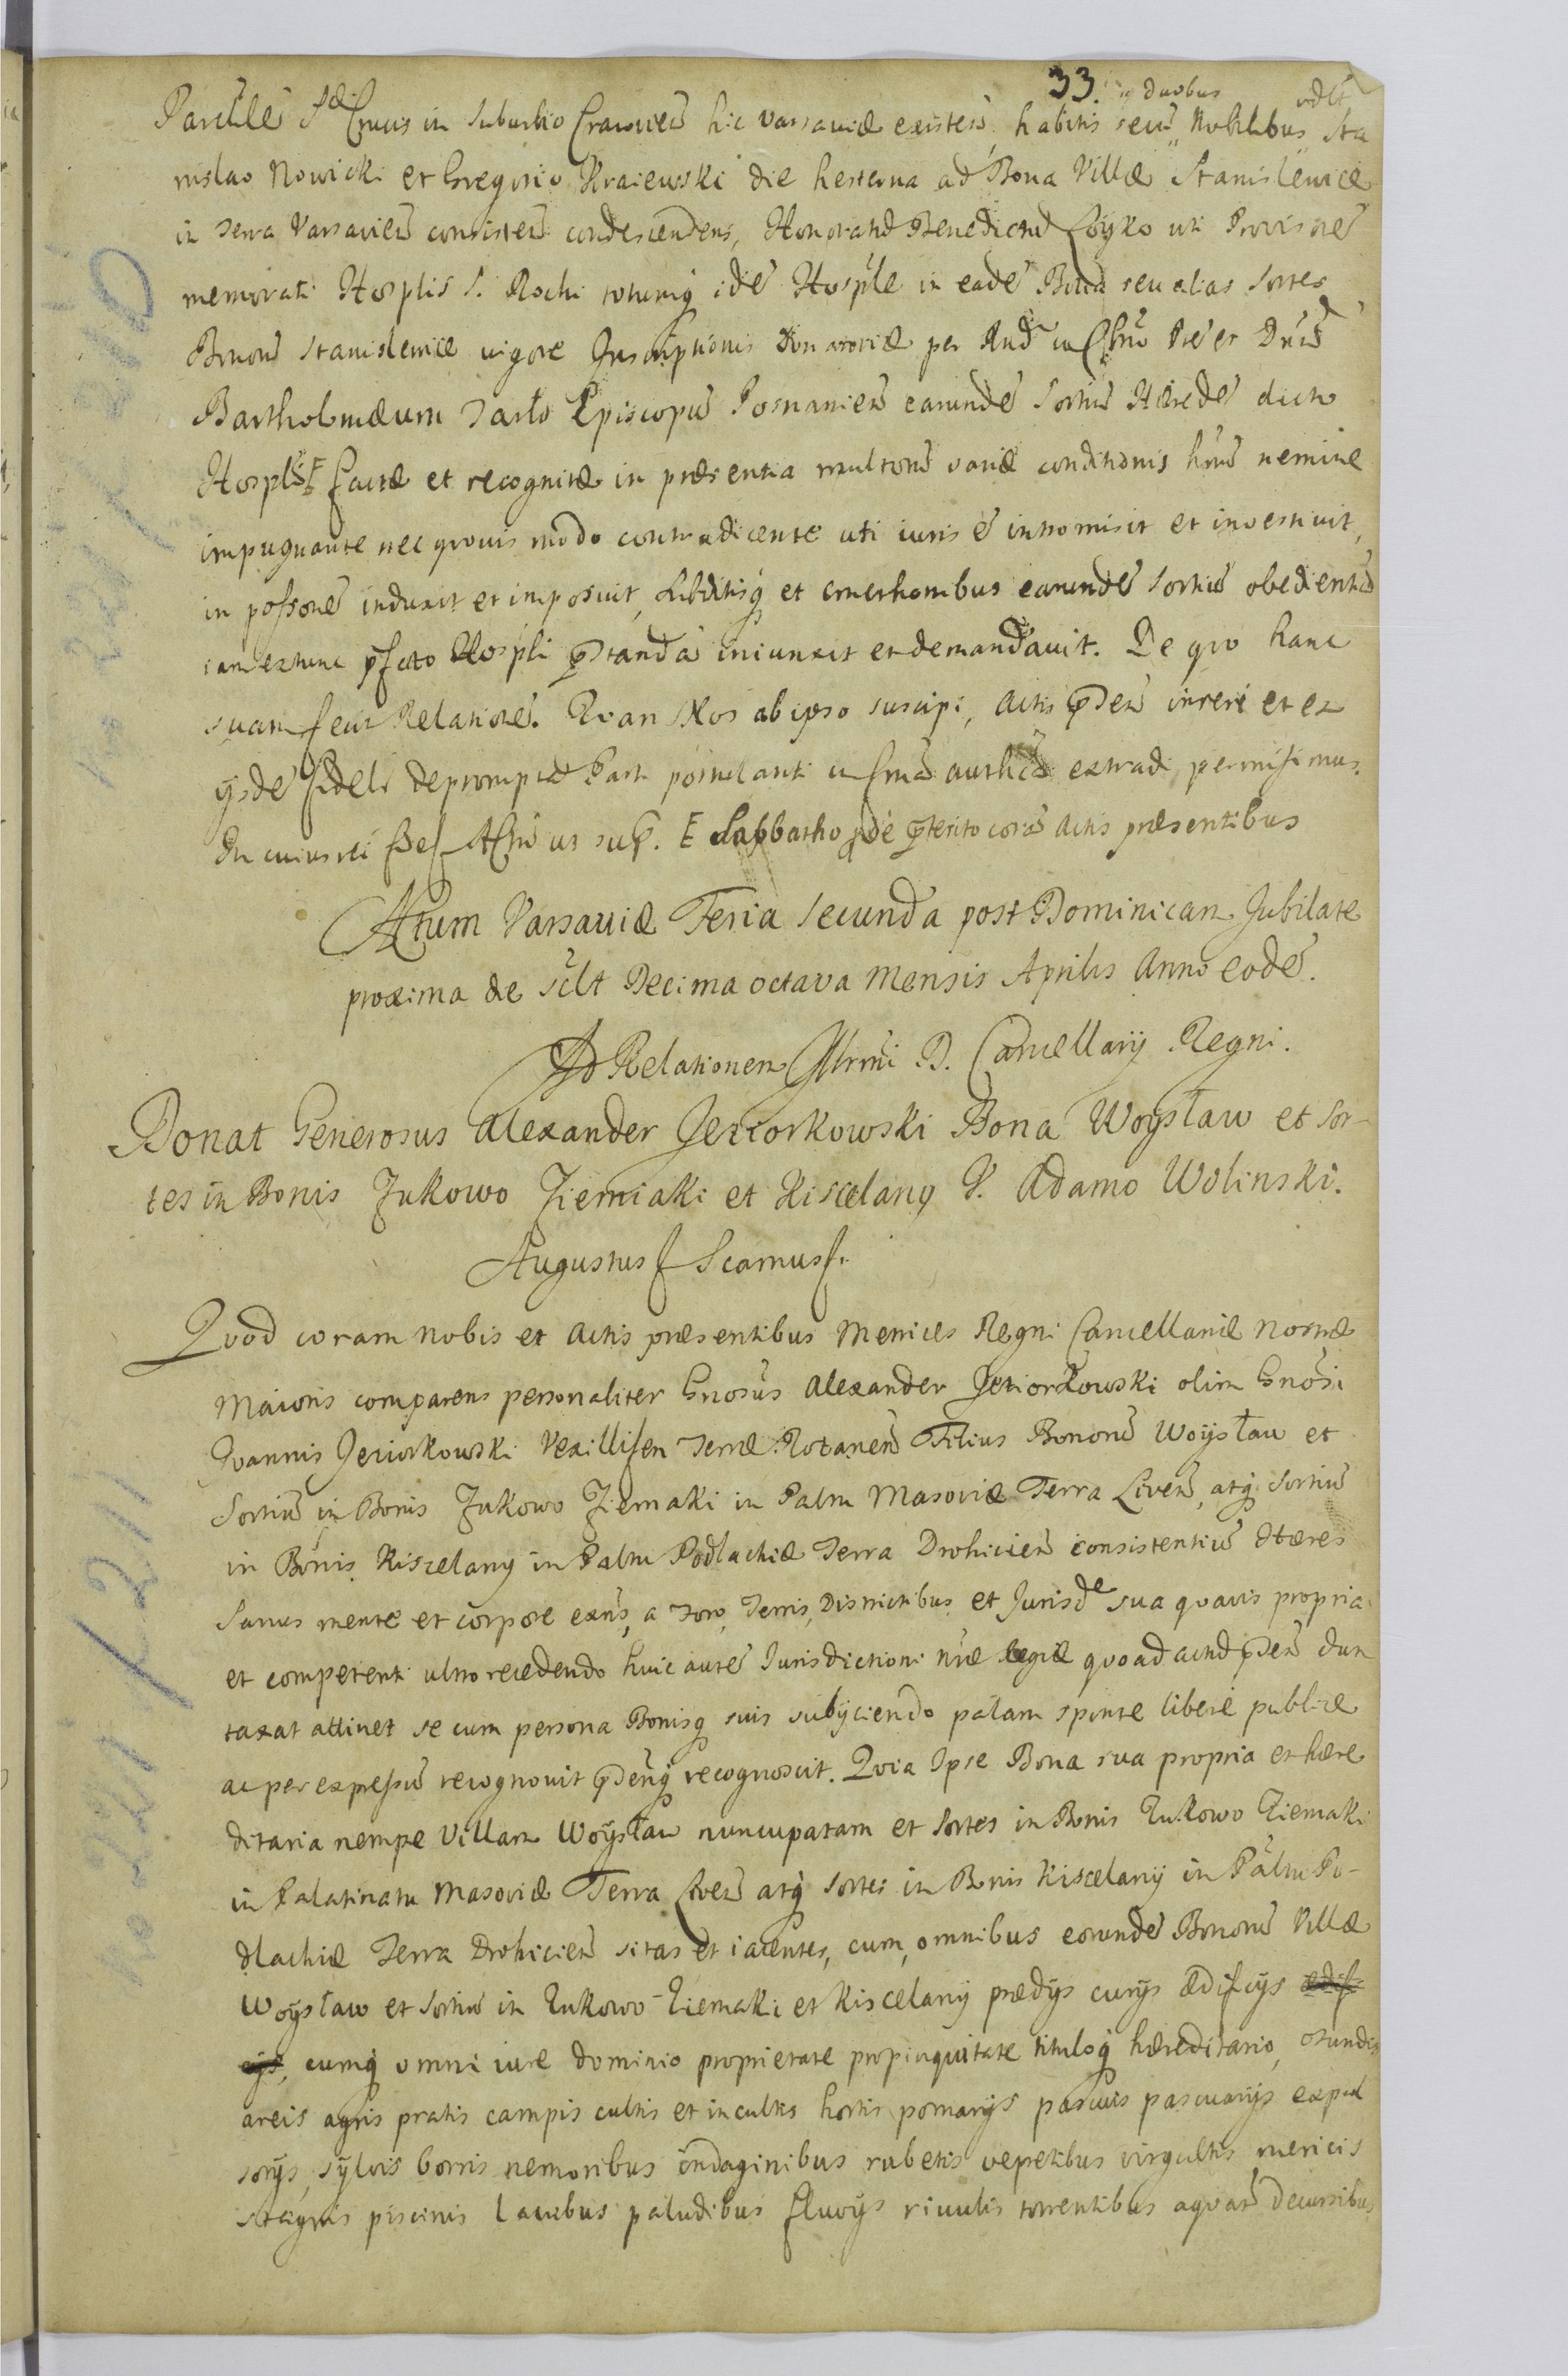 33. duobus
Parãlẽ S. Crucis in Suburbio Cracovieñ hic Varsaviæ existeñ, habitis secũ Nobilibus Sta
nislao Nowicki et Gregorio Kraiewski die hesterna ad Bona Villæ Stanislewice
in Terra Varsavieñ consisteñ condescendens, Honoratũ Benedictũ Łoyko uti Provisorẽ
memorati Hosplis S. Rochi totumq̃ idẽ Hosple in eadẽ Bona seu alias Sortes
Bonorũ Stanislewice vigore Inscriptionis Donatoriæ per Rnd in Chro Pre et Dnũ
Bartholomæum Tarło Episcopũ Posnanieñ earundẽ Sortiũ Hæredẽ dicto
Hospli F factæ et recognitæ in præsentia multorũ variæ conditionis hnũ nemine
impugnante nec quovis modo contradicente uti iuris ẽ intromisit et investivit,
in possonẽ induxit et imposuit, subditisq̃ et cmethonibus earundẽ Sortiũ obedientiã
iam extunc pfato Hospli pstandã iniunxit et demandavit. De quo hanc
suam fecit Relationẽ. Quam Nos ab ipso suscipi, Actis pseñ inseri et ex
ijsdẽ fideli depromptã Parti postulanti in fmã authcã extradi permisimus.
In cuius rei ss Actũ ut sup. F Sabbatho pterito corã Actis præsentibus
Actum Varsaviæ Feria Secunda post Dominicam Jubilate
proxima die scilt Decima octava Mensis Aprilis Anno eodẽ.
Ad Relationem Illrmi D. Cancellarij Regni.
Donat Generosus Alexander Jeziorkowski Bona Woysław et Sor-
tes in Bonis Zukowo Ziemiaki et Kiscelany G. Adamo Wolinski.
Augustus f Scamus f.
Quod coram Nobis et Actis præsentibus Metrices Regni Cancellariæ Nostræ
Maioris comparens personaliter Gnosus Alexander Jeziorkowski olim Gnosi
Ioannis Jeziorkowski Vexilliferi Terræ Rozaneñ Filius Bonorũ Woysław et
Sortiũ in Bonis Zukowo Ziemaki in Paltu Masoviæ Terra Liveñ, atq̃ Sortiũ
in Bonis Kiscelany in Paltu Podlachiæ Terra Drohicieñ consistentiũ Hæres
Sanus mente et corpore exñs, a Foro, Terris, Districtibus et Jurisdẽ sua quavis propria
et competenti ultro recedendo huic autẽ Jurisdictioni nræ Regiæ quoad actũ pseñ dun
taxat attinet se cum persona Bonisq̃ suis subijciendo palam sponte libere publice
ac per expressũ recognovit pseñq̃ recognoscit. Quia Ipse Bona sua propria et hære
ditaria nempe Villam Woysław nuncupatam et Sortes in Bonis Zukowo Ziemaki
in Palatinatu Masoviæ Terra Liveñ atq̃ Sortes in Bonis Kiscelany in Paltu Po-
dlachiæ Terra Drohicieñ sitas et iacentes, cum omnibus eorundẽ Bonorũ Villæ
Woysław et Sortiũ in Zukowo-Ziemaki et Kiscelany prædijs curijs ædificijs ædifi
cijs, cumq̃ omni iure dominio proprietate propinquitate tituloq̃ hæreditario, Fundis
areis agris pratis campis cultis et incultis hortis pomarijs pascuis pascuarijs expul
sorijs, sylvis borris nemoribus indaginibus rubetis vepetibus virgultis mericis
stagnis piscinis lacubus paludibus fluvijs rivulis torrentibus aquarũ decursibus